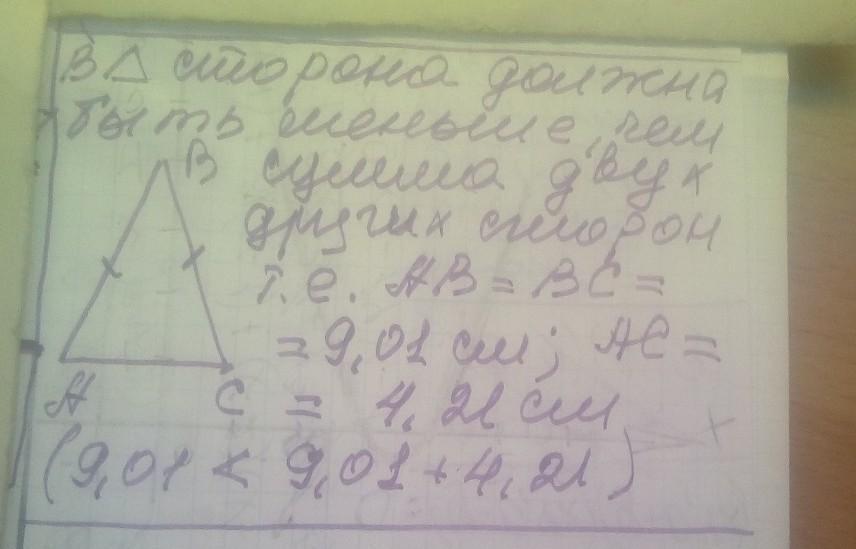 В △ сторона должна
быть меньше, чем
B сумма двух
других сторон
т.е. AB = BC =
= 9,01 см; AC =
A C = 4,21 см
(9,01 < 9,01 + 4,21)